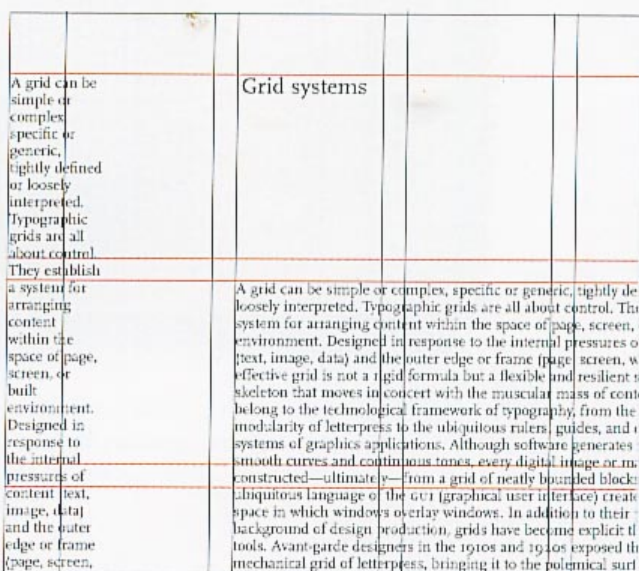 A grid can be
simple or
complex
specific or
generic,
tightly defined
or loosely
interpreted.
Typographic
grids are all
about control.
They establish
a system for
arranging
content
within the
space of page,
screen, or
built
environment.
Designed in
response to
the internal
pressures of
content text,
image, data)
and the outer
edge or frame
(page, screen,
Grid systems
A grid can be simple or complex, specific or generic, tightly de
loosely interpreted. Typographic grids are all about control. The
system for arranging content within the space of page, screen,
environment. Designed in response to the internal pressures o
(text, image, data) and the outer edge or frame (page screen, w
effective grid is not a rigid formula but a flexible and resilient s
skeleton that moves in concert with the muscular mass of cont
belong to the technological framework of typography, from the
modularity of letterpress to the ubiquitous rulers, guides, and
systems of graphics applications. Although software generates
smooth curves and continuous tones, every digital image or m
constructed—ultimately—from a grid of neatly bounded blocks
ubiquitous language of the GUI (graphical user interface) create
space in which windows overlay windows. In addition to their
background of design production, grids have become explicit th
tools. Avant-garde designers in the 1910s and 1920s exposed th
mechanical grid of letterpress, bringing it to the polemical surf